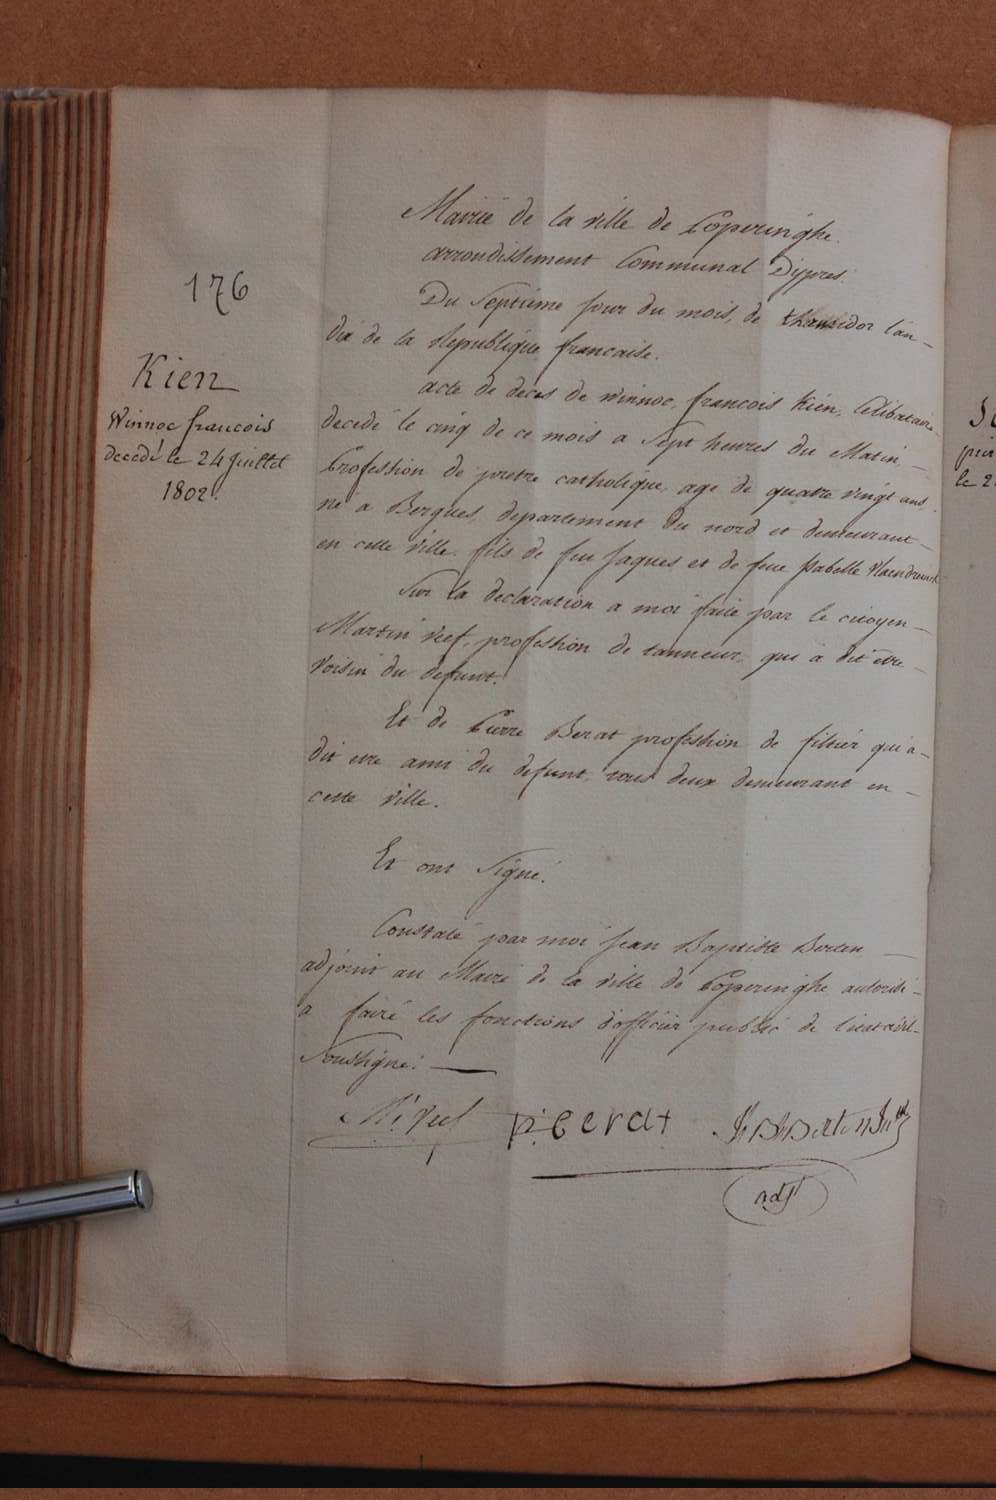 176
Kien
Winnoc francois
decedé le 24 Juillet
1802.
Mairie de la ville de Poperinghe
arrondissement Communal D'ypres.
Du Septieme jour du mois, de thermidor l'an
dix de la Republique francaise.
acte de deces de winnoc, francois Kien, Celibataire
decedé le cinq de ce mois a Sept heures du Matin,
Profession de pretre catholique, agé de quatre vingt ans
né a Bergues, departement du nord et demeurant
en cette ville. fils de feu Jaques et de feue Isabelle
Sur la declaration a moi faite par le citoyen
Martin veef, profession de tanneur, qui a dit etre
voisin du defunt.
Et de Pierre Berat profession de filtier qui a
dit etre ami du defunt, tous deux demeurant en
cette ville.
Et ont signé.
Constaté par moi Jean Baptiste Berten
adjoint au Maire de la ville de Poperinghe autorisé
a faire les fonctions d'officier public de l'etat civil
Soussigné.
M: Veef p: berat
adjt